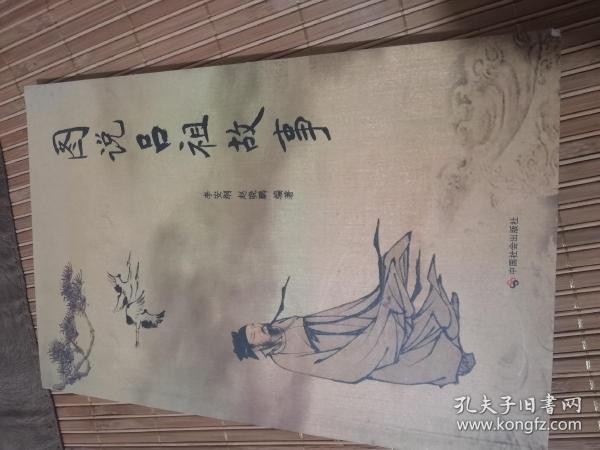 图说吕祖故事
李安纲 赵晓鹏 编著
中国社会出版社
孔夫子旧书网
www.kongfz.com